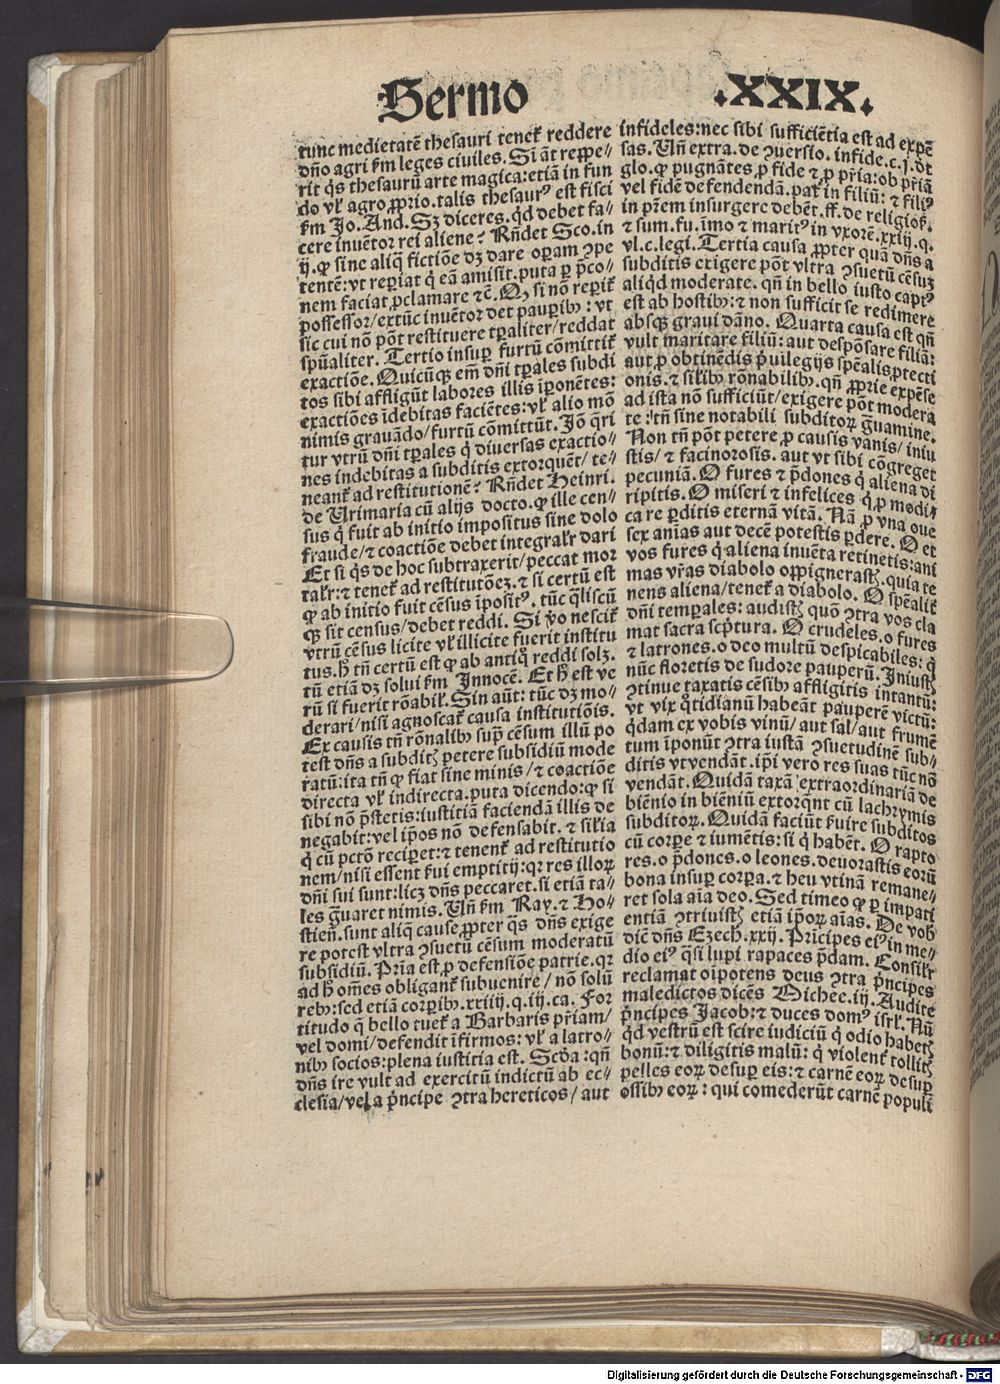 Sermo .XXIX.
tunc medietatē thesauri tenet᷑ reddere
dn̄o agri ẜm leges ciuiles. Si aūt reppe⸗
rit q̇s thesaurū arte magica: etiā in fun
do vl̓ agro ꝓprio. talis thesaurꝰ est fisci
ẜm Jo. And. Sꝫ diceres. qd̓ debet fa⸗
cere inuētor rei aliene? Rn̄det Sco. in
ij. ꝙ sine aliq̄ fictiōe dꝫ dare operam ꝯpe
tentē: vt reperiat q̇ eā amisit. puta ꝑ p̄co⸗
nem faciat ꝓclamare ⁊c̄. Qꝫ si nō reperit᷑
possessor/ extūc inuētor det pauperibꝫ: vt
sic cui nō pōt restituere tꝑaliter/ reddat
spūaliter. Tertio insuꝑ furtū cōmittit᷑
exactiōe. Quicūqꝫ em̄ dn̄i tꝑales subdi
tos sibi affligūt labores illis īponētes:
exactiōes īdebitas faciētes: vl̓ alio mō
nimis grauādo/ furtū cōmittūt. Jō q̄ri
tur vtrū dn̄i tꝑales q̇ diuersas exactio⸗
nes indebitas a subditis extorquēt/ te⸗
neant᷑ ad restitutionē? Rn̄det Heinri.
de Vrimaria cū alijs docto. ꝙ ille cen⸗
sus q̇ fuit ab initio impositus sine dolo
fraude/ ⁊ coactiōe debet integralr̄ dari
Et si q̇s de hoc subtraxerit/ peccat mor
talr̄: ⁊ tenet᷑ ad restitutōeꝫ. ⁊ si certū est
ꝙ ab initio fuit cēsus īpositꝰ. tūc q̇liscū
qꝫ sit census/ debet reddi. Si v̓o nescit᷑
vtrū cēsus licite vl̓ illicite fuerit institu
tus. h̓ tn̄ certū est ꝙ ab antiq̇ reddi solꝫ.
tū etiā dꝫ solui ẜm Innocē. Et h̓ est ve
rū si fuerit rōabil̓. Sin aūt: tūc dꝫ mo⸗
derari/ nisi agnoscat᷑ causa institutiōis.
Ex causis tn̄ rōnalibꝫ supᷓ cēsum illū po
test dn̄s a subditꝭ petere subsidiū mode
ratū: ita tn̄ ꝙ fiat sine minis/ ⁊ coactiōe
directa vl̓ indirecta. puta dicendo: ꝙ si
sibi nō p̄stetis: iustitiā faciendā illis de
negabit: vel ip̄os nō defensabit. ⁊ sil̓ia
q̇ cū pctō reciperet: ⁊ tenent᷑ ad restitutio
nem/ nisi essent ẜui emptitij: qr res illoꝝ
dn̄i sui sunt: licꝫ dn̄s peccaret. si etiā ta⸗
les ḡuaret nimis. Vn̄ ẜm Ray. ⁊ Ho⸗
stien̄. sunt aliq̄ cause ꝓpter q̄s dn̄s exige
re potest vltra ꝯsuetū cēsum moderatū
subsidiū. Prīa est ꝓ defensiōe patrie. qr
ad h̓ om̄es obligant᷑ subuenire/ nō solū
rebꝫ: sed etiā corꝑibꝫ. xxiiij. q. iij. ca. For
titudo q̄ bello tuet᷑ a Barbaris p̄riam/
vel domi/ defendit īfirmos: vl̓ a latro⸗
nibꝫ socios: plena iustitia est. Scd̓a: qn̄
dn̄s ire vult ad exercitū indictū ab ec⸗
clesia/ vel a p̄ncipe ꝯtra hereticos/ aut
infideles: nec sibi sufficiētia est ad expē
sas. Vn̄ extra. de ꝯuersio. infide. c. j. dt̄
glo. ꝙ pugnātes ꝓ fide ⁊ ꝓ p̄ria: ob p̄riā
vel fidē defendendā. pat᷑ in filiū: ⁊ filiꝰ
in pr̄em insurgere debēt. ff. de religios̄.
⁊ sum. fu. īmo ⁊ maritꝰ in vxorē. xxiij. q.
vl. c. legi. Tertia causa ꝓpter quā dn̄s a
subditis exigere pōt vltra ꝯsuetū cēsuꝫ
aliqd̓ moderate. qn̄ in bello iusto captꝰ
est ab hostibꝫ: ⁊ non sufficit se redimere
absqꝫ graui dāno. Quarta causa est qn̄
vult maritare filiū: aut despōsare filiā:
aut ꝓ obtinēdis p̄uilegijs spēalis ꝓtecti
onis. ⁊ sil̓ibꝫ rōnabilibꝫ. qn̄ ꝓprie expēse
ad ista nō sufficiūt/ exigere pōt modera
te: tn̄ sine notabili subditoꝝ ḡuamine.
Non tn̄ pōt petere ꝓ causis vanis/ iniu
stis/ ⁊ facinorosis. aut vt sibi cōgreget
pecuniā. O fures ⁊ p̄dones q̇ aliena di
ripitis. O miseri ⁊ infelices q̇ ꝓ modi⸗
ca re ꝑditis eternā vitā. Nā ꝓ vna oue
sex aīas aut decē potestis ꝑdere. O et
vos fures q̇ aliena inuēta retinetis: ani
mas vr̄as diabolo oppignerastꝭ. quia te
nens aliena/ tenet᷑ a diabolo. O spēalit᷑
dn̄i temꝑales: audistꝭ quō ꝯtra vos cla
mat sacra scp̄tura. O crudeles. o fures
⁊ latrones. o deo multū despicabiles: q̇
nūc floretis de sudore pauperū. Iniustꝭ
ꝯtinue taxatis cēsibꝫ affligitis intantū:
vt vix q̇tidianū habeāt pauperē victū:
q̇dam ex vobis vinū/ aut sal/ aut frumē
tum īponūt ꝯtra iustā ꝯsuetudinē sub⸗
ditis vt vendāt. ip̄i vero res suas tūc nō
vendāt. Quidā taxā extraordinariā de
biēnio in biēniū extorq̄nt cū lachrymis
subditoꝝ. Quidā faciūt ẜuire subditos
cū corꝑe ⁊ iumētis: si q̄ habēt. O rapto
res. o p̄dones. o leones. deuorastis eorū
bona insuꝑ corꝑa. ⁊ heu vtinā remane⸗
ret sola aīa deo. Sed timeo ꝙ ꝑ impati
entiā ꝯtriuistꝭ etiā ip̄oꝝ aīas. De vob̓
dic̄ dn̄s Ezech. xxij. Prīncipes eiꝰ in me⸗
dio eiꝰ q̄si lupi rapaces p̄dam. Consil̓r
reclamat oīpotens deus ꝯtra p̄ncipes
maledictos dicēs Michee. iij. Audite
p̄ncipes Jacob: ⁊ duces domꝰ isrl̓. Nū
qd̓ vestrū est scire iudiciū q̇ odio habetꝭ
bonū: ⁊ diligitis malū: q̇ violent᷑ tollitꝭ
pelles eoꝝ desuꝑ eis: ⁊ carnē eoꝝ desuꝑ
ossibꝫ eoꝝ: qui comederūt carnē populi
Digitalisierung gefördert durch die Deutsche Forschungsgemeinschaft - DFG